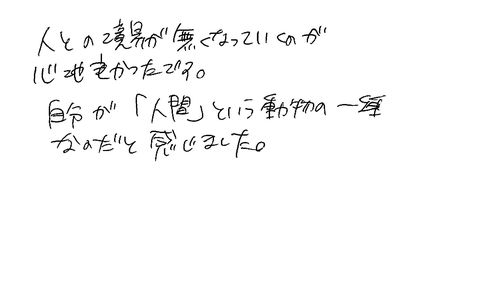 人との境界が無くなっていくのが
心地よかったです。
自分が「人間」という動物の一種
なのだと感じました。